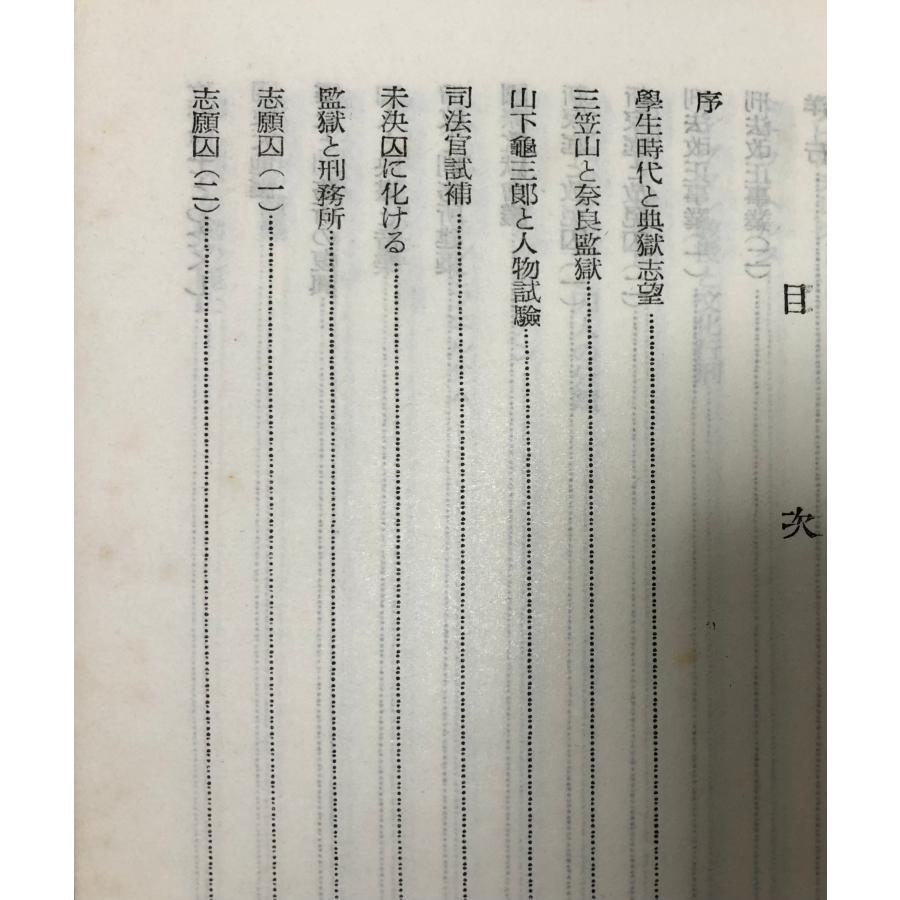 目次
序
學生時代と典獄志望
三笠山と奈良監獄
山下龜三郎と人物試驗
司法官試補
未決囚に化ける
監獄と刑務所
志願囚(一)
志願囚(二)